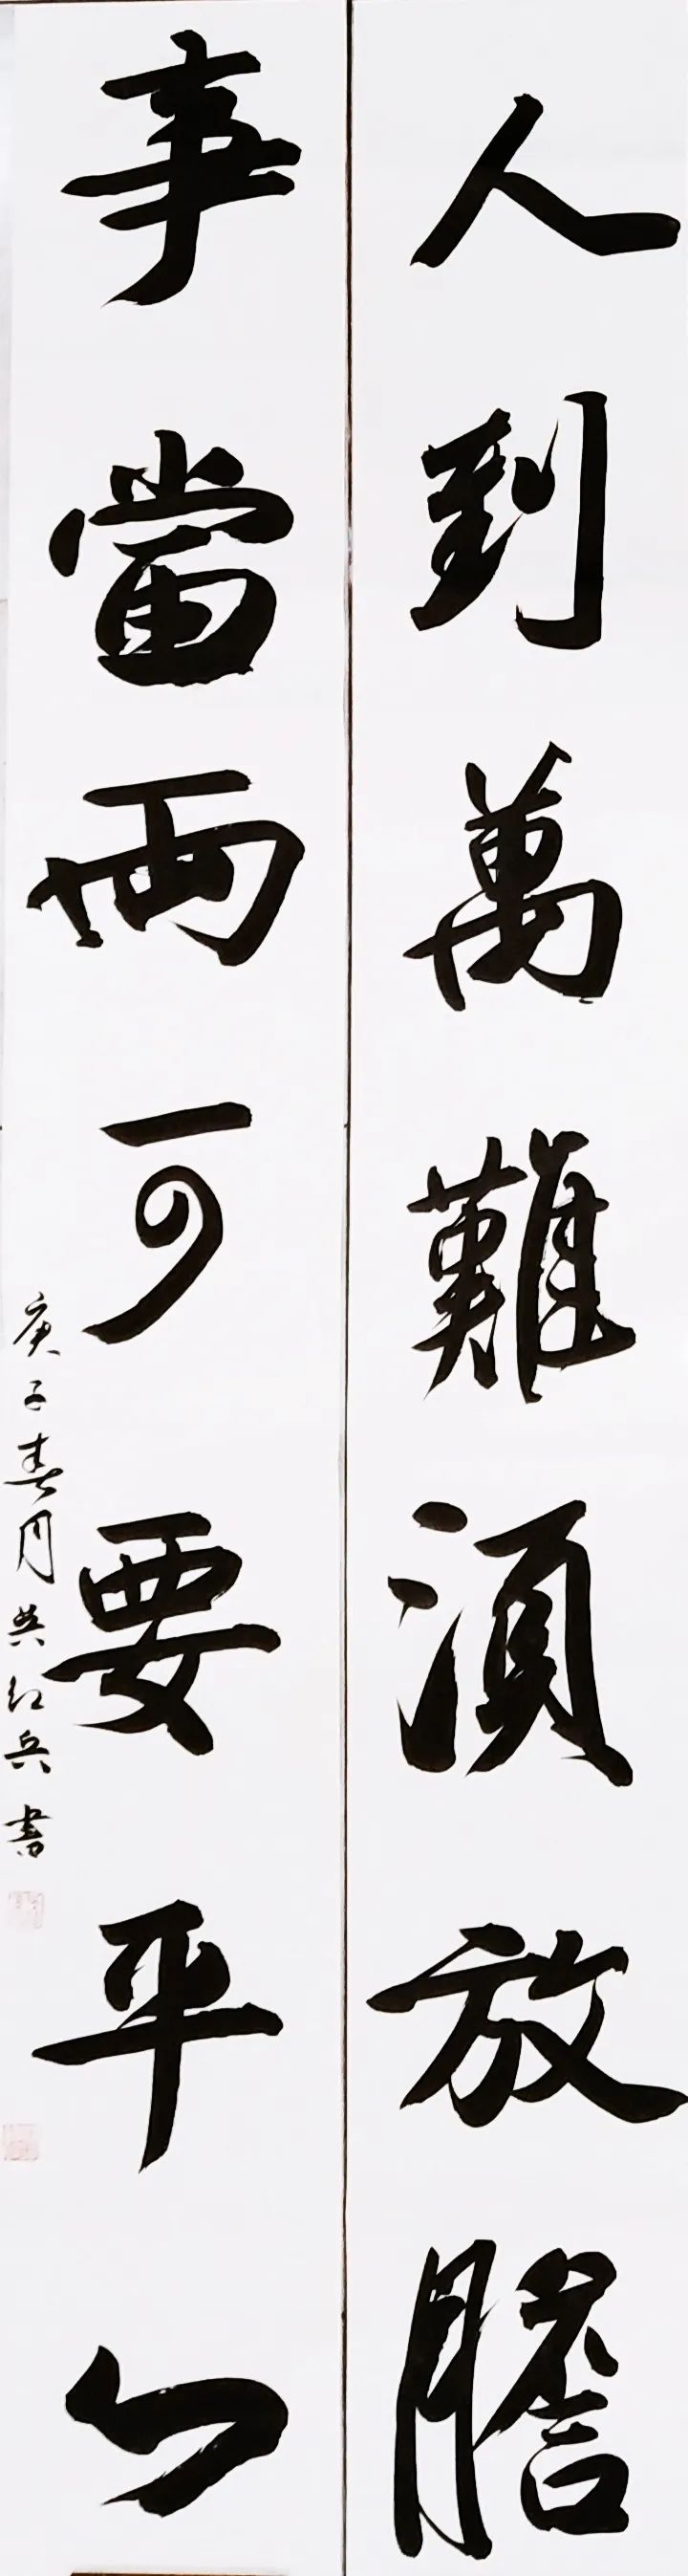 人到萬難須放膽
事當兩可要平心
庚子春月吳紅兵書